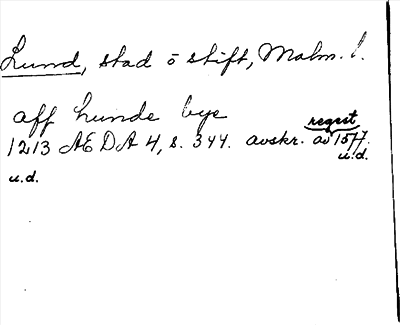 Lund, stad o stift, Malm. l.
aff hunde bye
regest
1213 AEDA 4, s. 344. avskr. av 1577.
u.d.
u.d.